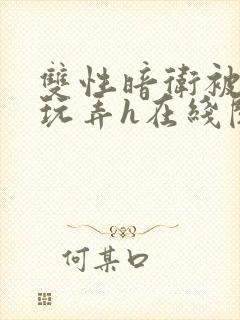 雙性暗衛被
玩弄h在綫
何某口